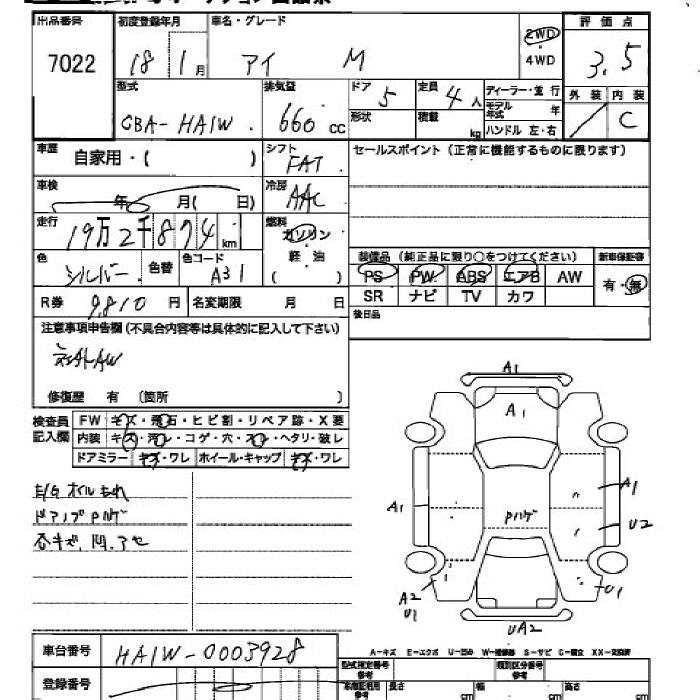 出品番号 初度登録年月 車名・グレード 評価点
7022 18 1月 アイ M 2WD 4WD 3.5
型式 排気量 ドア 5 定員 4人 ディーラー・並行 外装 内装
GBA-HA1W 660cc 形状 積載 kg モデル年式 年 C
ハンドル 左・右
車歴 自家用・( ) シフト FAT セールスポイント(正常に機能するものに限ります)
車検 年 月( 日) 冷房 AAC
走行 19万2千874km 燃料 ガソリン
軽・油
( )
色 シルバー 色替 色コード A31
装備品(純正品に限り○をつけてください) 新車保証書
PS PW ABS エアB AW 有・無
SR ナビ TV カワ
R券 9,810円 名変期限 月 日
後日品
注意事項申告欄(不具合内容等は具体的に記入して下さい)
社外AW
修復歴 有 〔箇所 〕
検査員記入欄 FW キズ・飛石・ヒビ割・リペア跡・X要
内装 キズ・汚レ・コゲ・穴・スレ・ヘタリ・破レ
ドアミラー キズ・ワレ ホイール・キャップ キズ・ワレ
E/Gオイルもれ
ドアノブPハゲ
各キズ、凹、アセ
A1
A1
A1
A1
Pハゲ
U2
A2
U1
U1
UA2
A-キズ E-エクボ U-凹み W-補修跡 S-サビ C-腐食 XX-交換済
車台番号 HA1W-0003928
登録番号
型式指定番号 参考 類別区分番号 参考
長さ cm 幅 cm 高さ cm